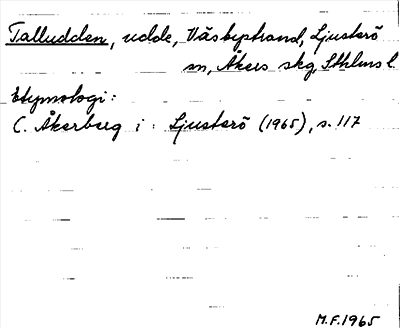 Talludden, udde, Väsbystrand, Ljusterö
sn, Åkers skg, Sthlms l.
Etymologi:
C. Åkerberg i: Ljusterö (1965), s. 117
M.F. 1965